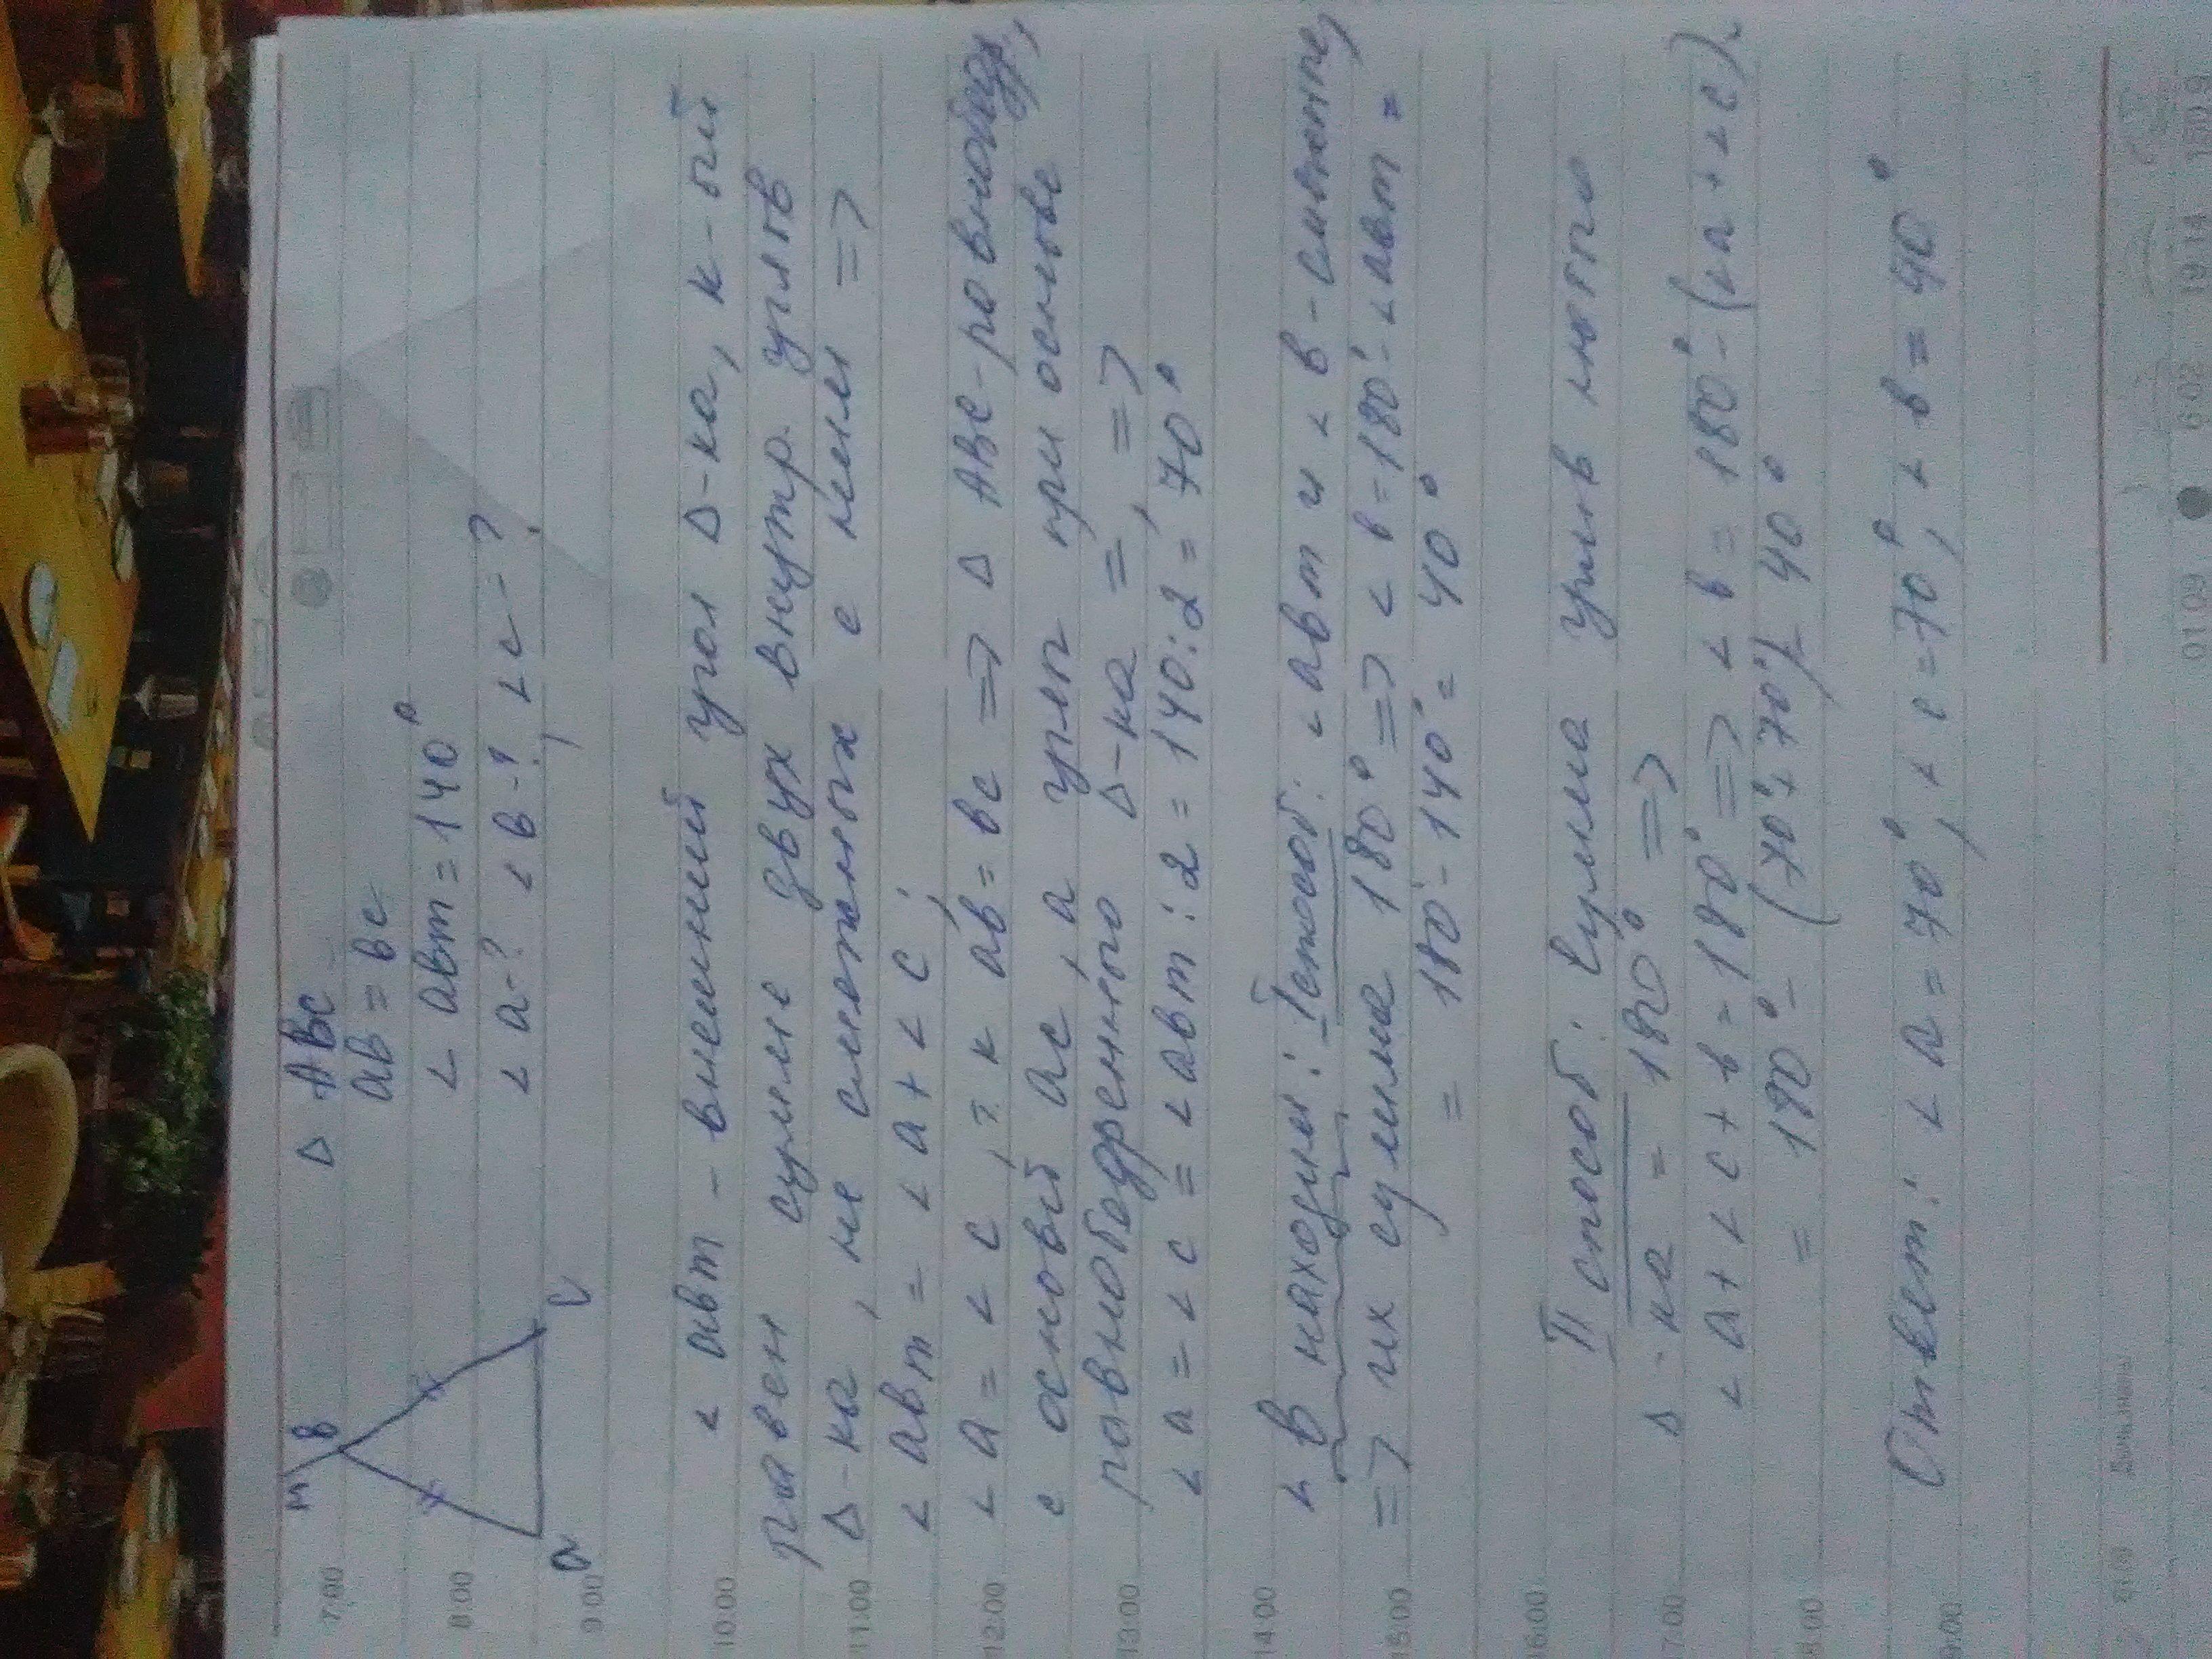 м
В
а
с
Δ АВс
ав = вс
∠ авм = 140°
∠ а-? ∠ в-?, ∠ с-?
∠ авм - внешний угол Δ-ка, к-ый
равен сумме двух внутр. углов
Δ-ка, не смежных с ним =>
∠ авм = ∠ а + ∠ с;
∠ а = ∠ с, т. к ав = вс => Δ АВс-равнобедр,
с основой ас, а углы при основе
равнобедренного Δ-ка =, =>
∠ а = ∠ с = ∠ авм : 2 = 140:2 = 70°
∠ В находим: I способ: ∠ авм и ∠ в - смежные,
=> их сумма 180° => ∠ в = 180° - ∠ авм =
= 180° - 140° = 40°
II способ: Сумма углов любого
Δ-ка = 180° =>
∠ а + ∠ с + в = 180° => ∠ в = 180° - (∠ а + ∠ с).
= 180° - (70° + 70°) = 40°
Ответ: ∠ а = 70°, ∠ с = 70°, ∠ в = 40°
7:00
8:00
9:00
10:00
11:00
12:00
13:00
14:00
15:00
16:00
17:00
18:00
19:00
01.09
6:02 19:14